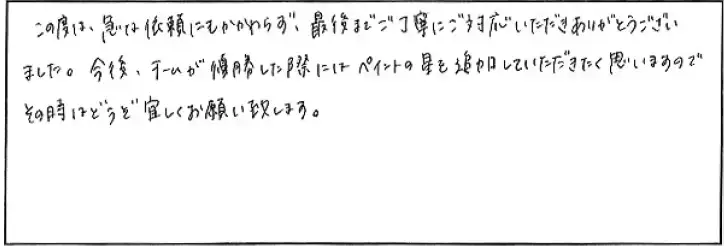 この度は、急な依頼にもかかわらず、最後までご丁寧にご対応いただきありがとうござい
ました。今後、チームが優勝した際にはペイントの星を追加していただきたく思いますので
その時はどうぞ宜しくお願い致します。